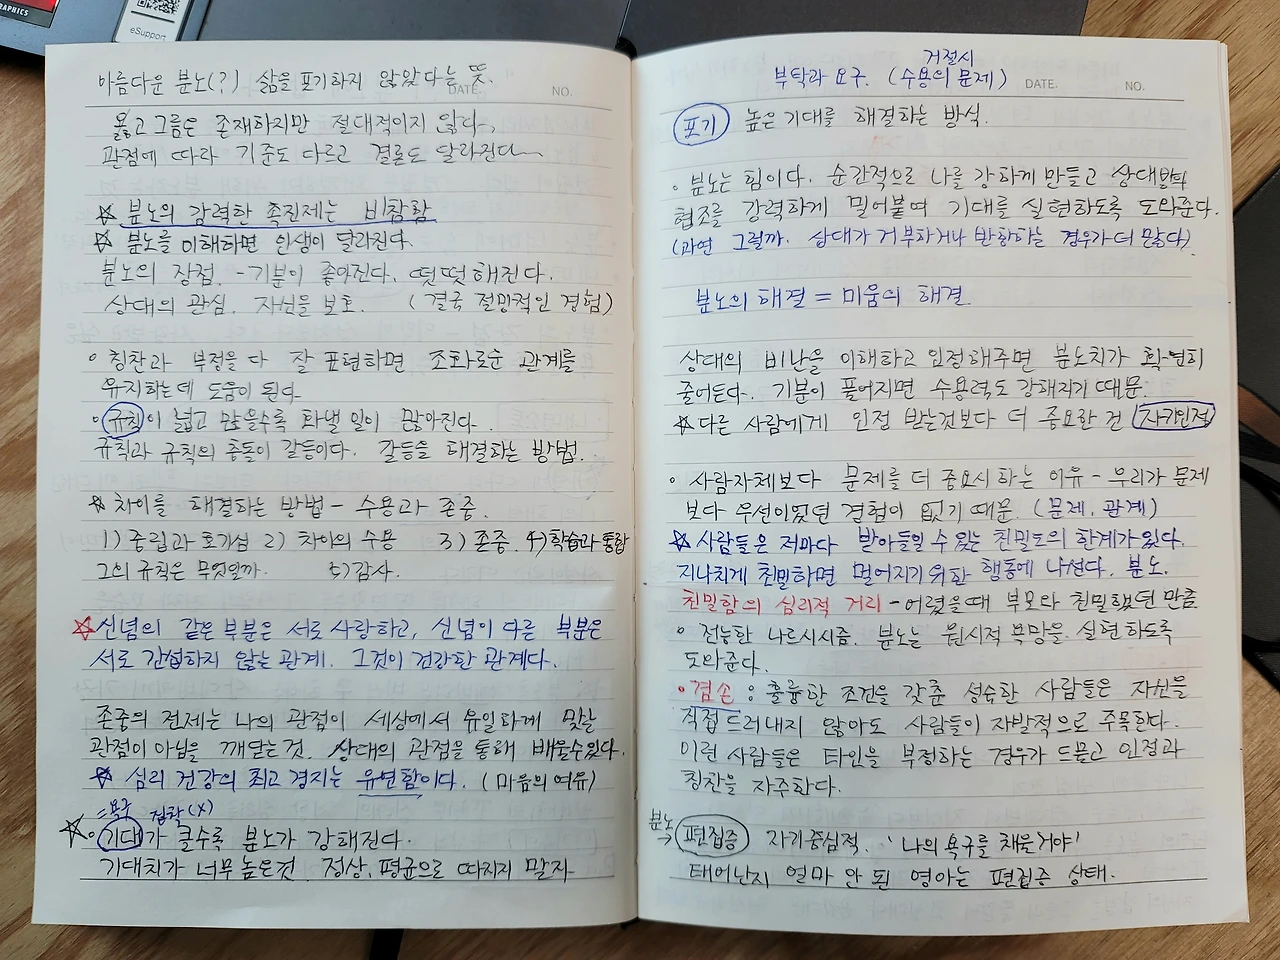 GRAPHICS
eSupport
아름다운 분노(?) 삶을 포기하지 않았다는 뜻.
DATE. NO.
옳고 그름은 존재하지만 절대적이지 않다.
관점에 따라 기준도 다르고 결론도 달라진다.
☆ 분노의 강력한 촉진제는 비참함
☆ 분노를 이해하면 인생이 달라진다.
분노의 장점 - 기분이 좋아진다. 떳떳해진다.
상대의 관심. 자신을 보호. (결국 절망적인 경험)
◦ 칭찬과 부정을 다 잘 표현하면 조화로운 관계를
유지하는데 도움이 된다
◦ 규칙이 넓고 많을수록 화낼 일이 많아진다.
규칙과 규칙의 충돌이 갈등이다. 갈등을 해결하는 방법.
☆ 차이를 해결하는 방법 - 수용과 존중.
1) 중립과 호기심 2) 차이의 수용 3) 존중. 4) 학습과 통합
그의 규칙은 무엇일까. 5) 감사.
☆ 신념의 같은 부분은 서로 사랑하고, 신념이 다른 부분은
서로 간섭하지 않는 관계. 그것이 건강한 관계다.
존중의 전제는 나의 관점이 세상에서 유일하게 맞는
관점이 아님을 깨닫는 것. 상대의 관점을 통해 배울수있다.
☆ 심리 건강의 최고 경지는 유연함이다. (마음의 여유)
=욕구 집착(X)
☆◦ 기대가 클수록 분노가 강해진다.
기대치가 너무 높은건 정상, 평균으로 따지지 말자
거절시
부탁과 요구. (수용의 문제)
DATE. NO.
포기 높은 기대를 해결하는 방식.
◦ 분노는 힘이다. 순간적으로 나를 강하게 만들고 상대방의
협조를 강력하게 밀어붙여 기대를 실현하도록 도와준다.
(과연 그럴까. 상대가 거부하거나 반항하는 경우가 더 많다).
분노의 해결 = 미움의 해결.
상대의 비난을 이해하고 인정해주면 분노치가 확연히
줄어든다. 기분이 풀어지면 수용력도 강해지기 때문.
☆ 다른 사람에게 인정 받는것보다 더 중요한 건 자기인정
◦ 사람자체보다 문제를 더 중요시 하는 이유 - 우리가 문제
보다 우선이었던 경험이 없기 때문. (문제, 관계)
☆ 사람들은 저마다 받아들일 수 있는 친밀도의 한계가 있다.
지나치게 친밀하면 멀어지기 위한 행동에 나선다. 분노.
친밀함의 심리적 거리 - 어렸을 때 부모와 친밀했던 만큼
◦ 전능한 나르시시즘. 분노는 원시적 욕망을 실현하도록
도와준다.
◦ 겸손 : 훌륭한 조건을 갖춘 성숙한 사람들은 자신을
직접 드러내지 않아도 사람들이 자발적으로 주목한다.
이런 사람들은 타인을 부정하는 경우가 드물고 인정과
칭찬을 자주한다.
분노
→ 편집증 자기중심적. '나의 욕구를 채울거야'
태어난지 얼마 안 된 영아는 편집증 상태.